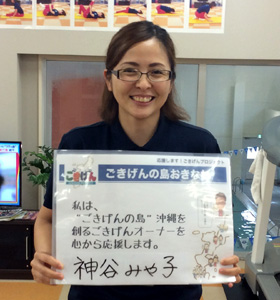 応援します!ごきげんプロジェクト
ごきげん
ごきげんの島おきな
私は、
"ごきげんの島"沖縄を
創るごきげんオーナーを
心から応援します。
神谷みや子